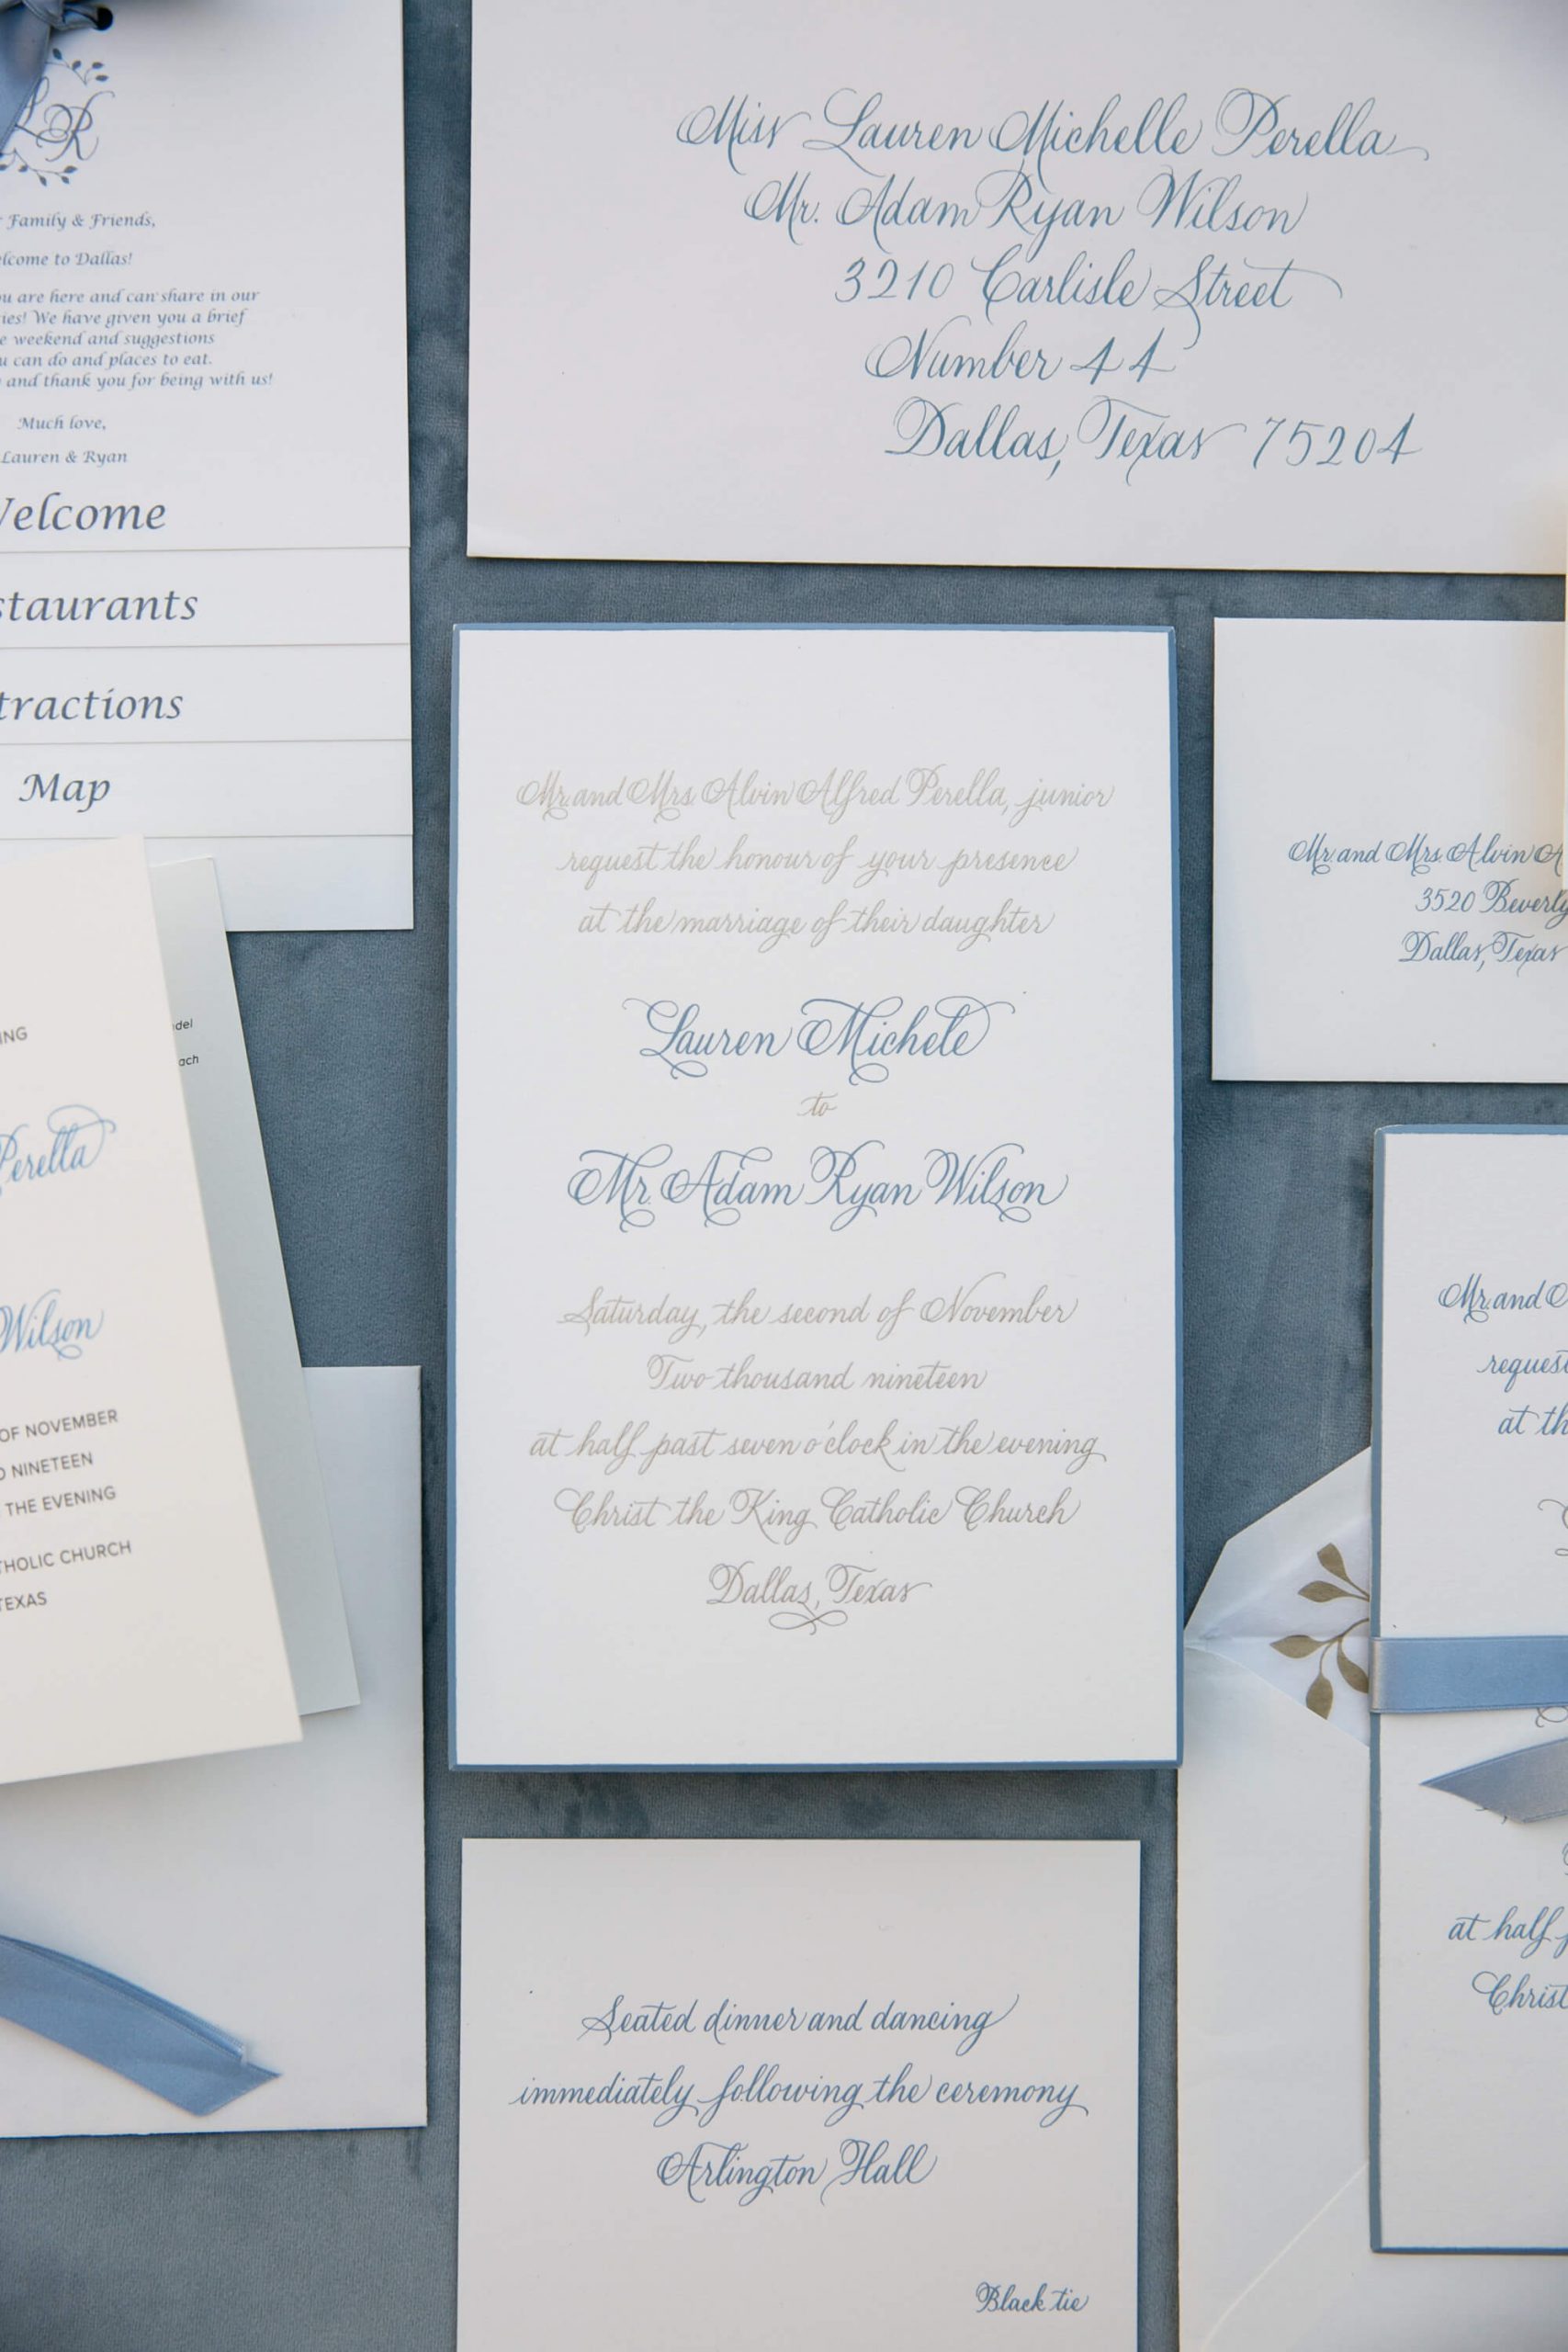 LR
Family & Friends,
to Dallas!
are here and can share in our
We have given you a brief
weekend and suggestions
can do and places to eat.
and thank you for being with us!
Much love,
Lauren & Ryan
Welcome
Map
Miss Lauren Michelle Perella
Mr. Adam Ryan Wilson
3210 Carlisle Street
Number 44
Dallas, Texas 75204
Mr. and Mrs. Alvin Alfred Perella, junior
request the honour of your presence
at the marriage of their daughter
Lauren Michele
to
Mr. Adam Ryan Wilson
Saturday, the second of November
Two thousand nineteen
at half past seven o'clock in the evening
Christ the King Catholic Church
Dallas, Texas
Mr. and Mrs. Alvin A
3520 Beverly
Dallas, Texas
Perella
Wilson
OF NOVEMBER
NINETEEN
THE EVENING
CHURCH
TEXAS
Mr. and
request
at th
at half
Christ
Seated dinner and dancing
immediately following the ceremony
Arlington Hall
Black tie